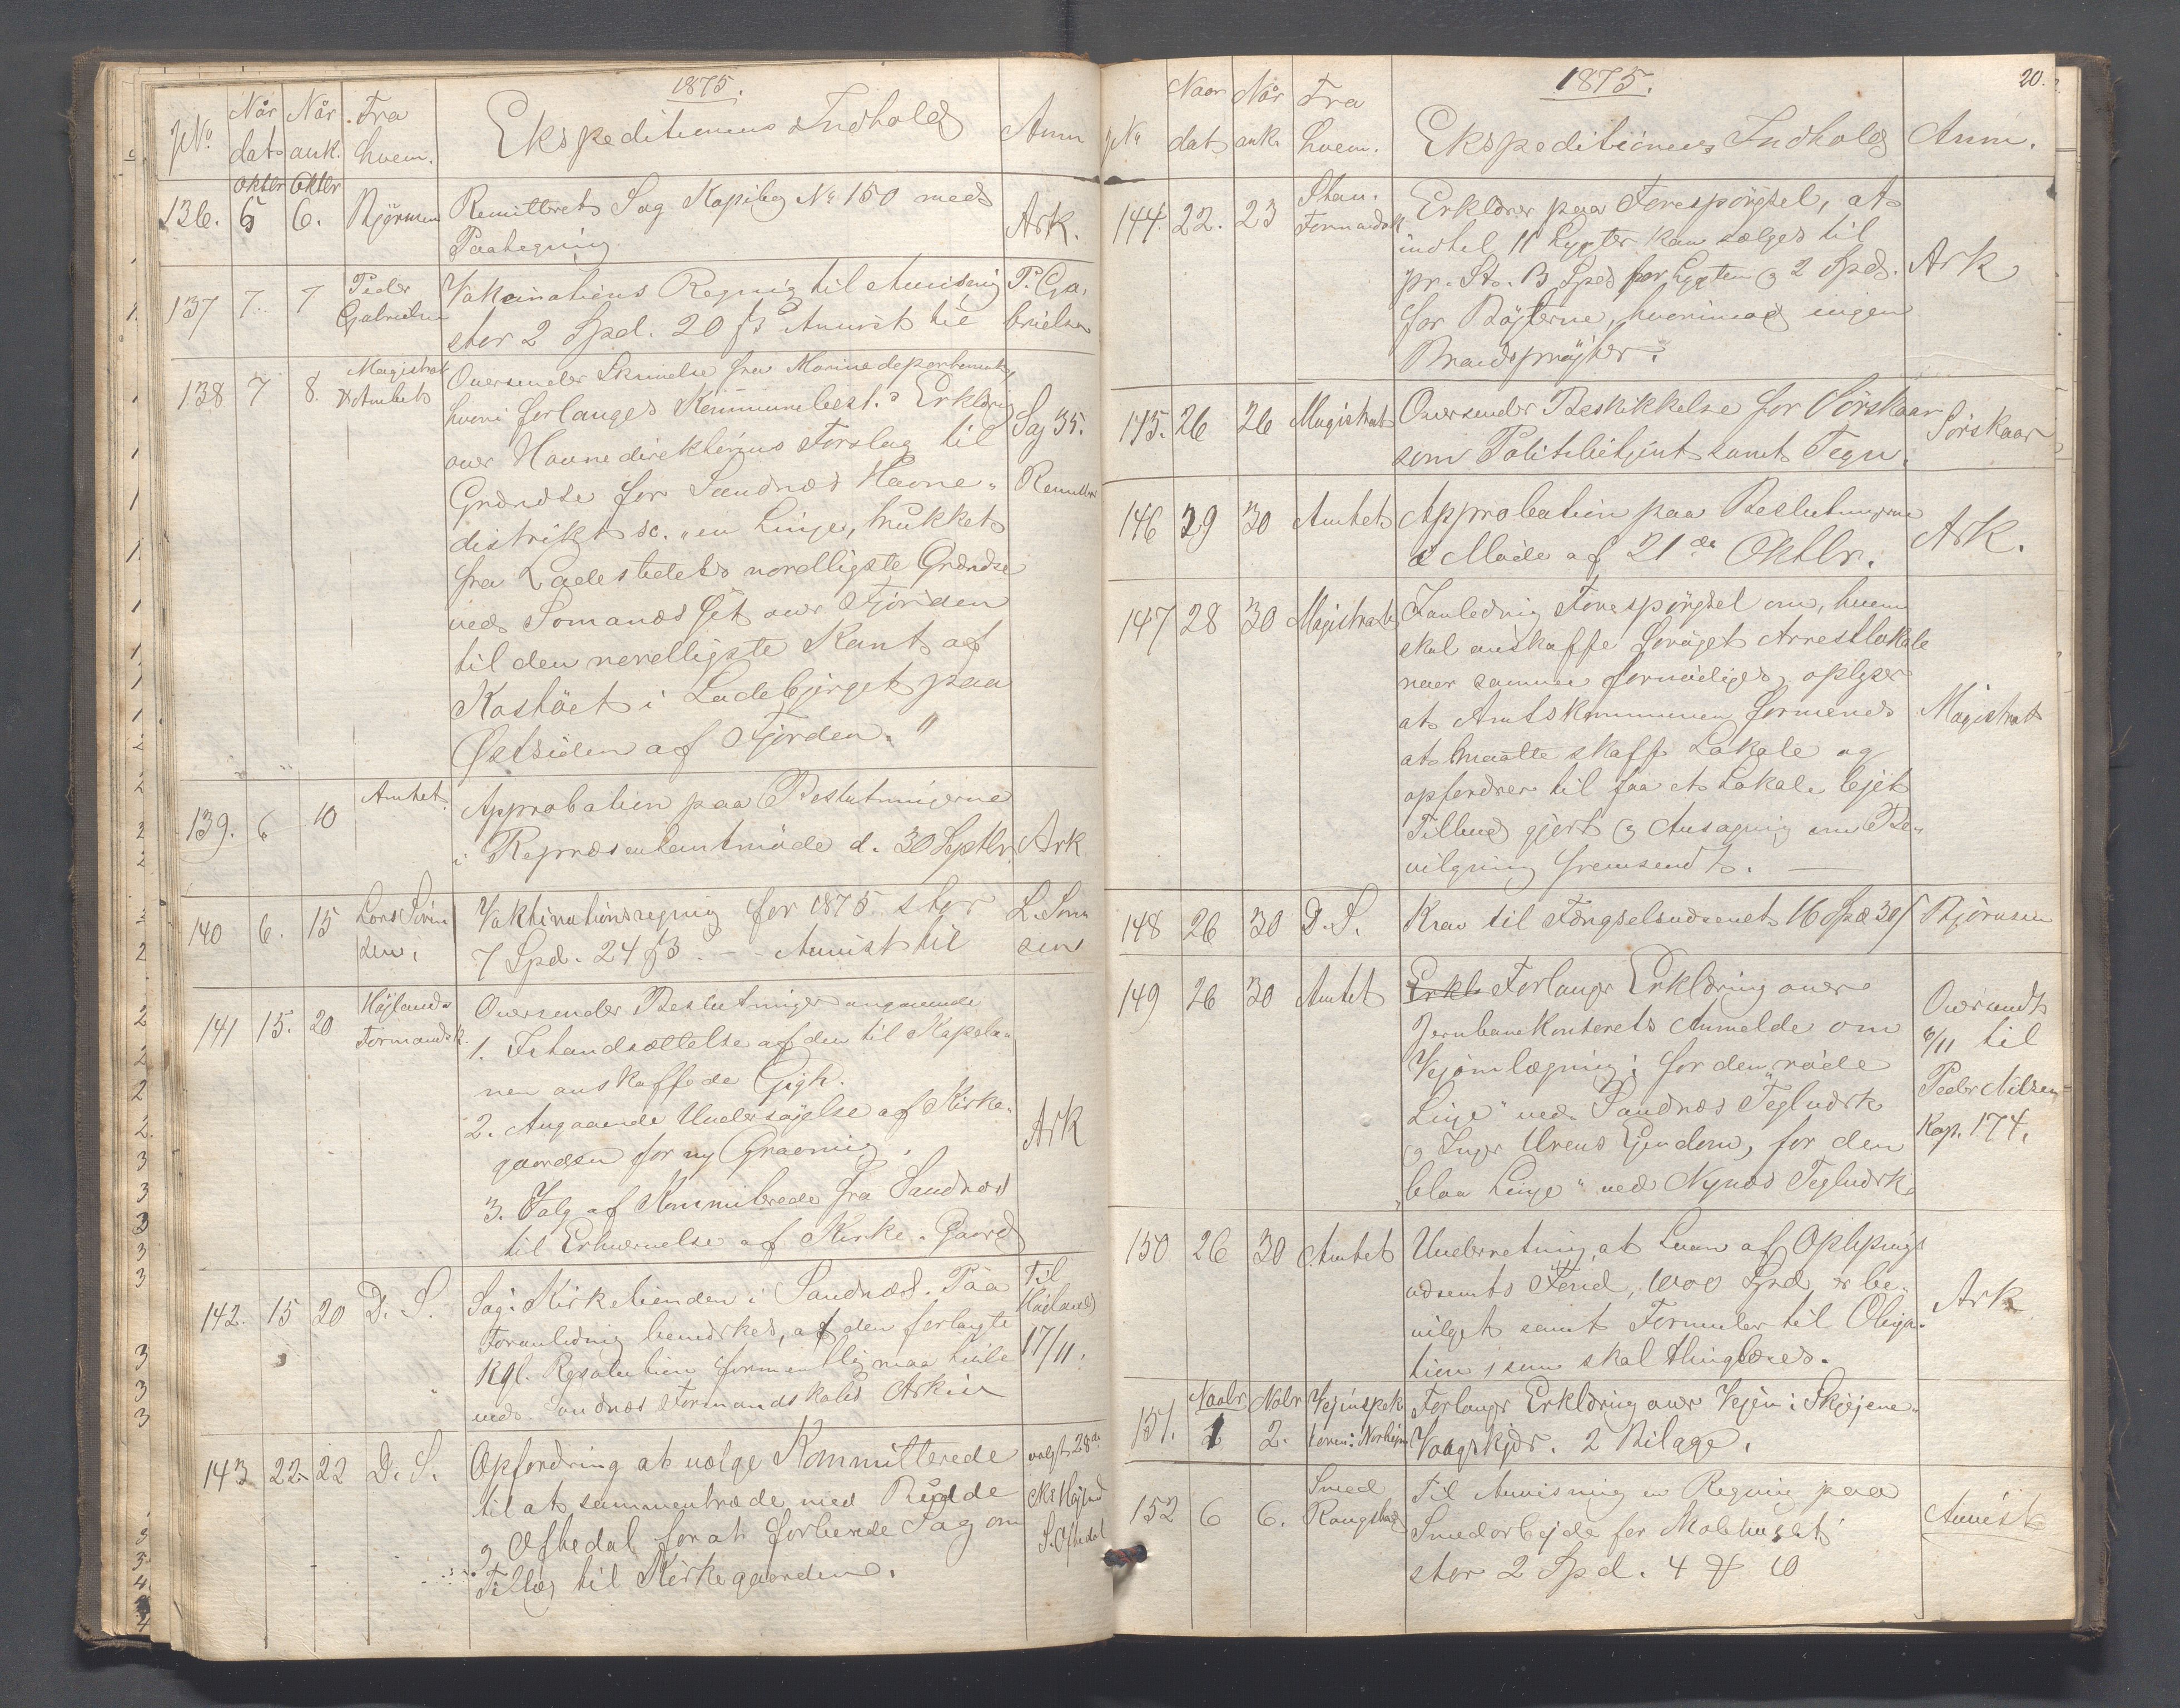 1875.
No. Når dat. Når ank. Fra hvem. Ekspeditionens Indhold Anm
Oktbr Oktbr
136. 5 6. Bjørnsen Remitteret Sag Kopibog No 150 med Ark.
Paategning
137 7. 7 Peder Gabrielsen Vakcinations Regning til Anvisning P. Ga-
stor 2 Spd. 20 ß Anvist til brielsen
138 7 8. Magistrat & Amtet Oversender Skrivelse fra Marinedepartementet,
hvori forlanges Kommunebest.s Erklæring Sag 35.
over Havnedirektørens Forslag til
Grændse for Sandnæs Havne- Remitt
distrikt so. "en Linje, trukket
fra Ladestedets nordligste Grændse
ved Somanæs Øst over Fjorden
til den nordligste Kant af
Kastöet i Ladebjerget paa
Østsiden af Fjorden."
139. 6 10 Amtet. Approbation paa Beslutningerne
i Repræsentantmøde d. 30 Septbr. Ark
140 6. 15 Lars Sivin sen. Vaktinationsregning for 1875 stor L. Sivin
7 Spd. 24 ß. - - Anvist til sen
141 15. 20 Højlands Formandsk. Oversender Beslutninger angaaende
1. Istandsættelse af den til Kapela-
nen anskaffede Gigh.
2. Angaaende Undersøgelse af Kirke- Ark
gaarden for ny Gravning.
3. Valg af Kommiterede fra Sandnæs
til Erhvervelse af Kirke-Gaard
142. 15 20 D. S. Sag i Kirketienden i Sandnæs. Paa Til
Foranledning bemærkes, at den forlangte Højland
Kgl. Resolution formentlig maa hvile 17/11.
ved Sandnæs Formandskabs Arkiv
143 22. 22 D. S. Opfordring at vælge Kommitterede valgt 28de
til at sammentræde med Rudde
og Ofstedal for at forberede Sag om S. Ofstedal
Tillæg til Kirkegaardene.
20.
1875.
No Naar dat. Når ank. Fra hvem. Ekspeditionens Indhold Anm.
144. 22. 23 Stav. Formandsk Erklærer paa Forespørgsel, at
indtil 11 Lygter kan sælges til
pr. St. 3 Spd for Lygten og 2 Spd. Ark
for Böjlerne, hvorimod ingen
Brandsprøjter.
145. 26 26 Magistrat Oversender Beskikkelse for Sörskaar Sörskaar
som Politibetjent samt Tegn.
146 29 30 Amtet Approbation paa Beslutningerne
i Møde af 21de Oktbr. Ark.
147 28 30 Magistrat I anledning Forespørgsel om, hvem
skal anskaffe forøget Arrestlokale
naar samme fornødiges, oplyser
at Amtskommunen formenes Magistrat
at maatte skaffe Lokale og
opfordrer til faa et Lokale lejet
Tilbud gjort og Ansøgning om Be-
vilgning fremsendt.
148 26 30 D. S. Krav til Fængselsvæsenet 16 Spd 30 ß Bjørnsen
149 26 30 Amtet Erkl. Forlanger Erklæring over Oversendt
Jernbanekontorets Anmelde om 6/11 til
Vejomlægning i for den "røde Peder Nilsen
Linje" ved Sandnæs Teglværk Kop. 174.
og Inger Urens Ejendom, for den
"blaa Linje" ved Nynæs Teglværk
150 26 30 Amtet Underretning, at Laan af Oplysnings
væsenets Fond, 1000 Spd, er be- Ark
vilget samt Formular til Obliga-
tion, som skal thinglæses.
Novbr. Nobr
151. 1 2. Vejinspektøren i Forlanger Erklæring over Vejen i Skjejene-
Vaagskjær. 2 Bilage.
152 6 6. Smed Rongstad Til Anvisning en Regning paa
Smedarbejde for Molehuset Anvist
stor 2 Spd. 4 ₰ 10